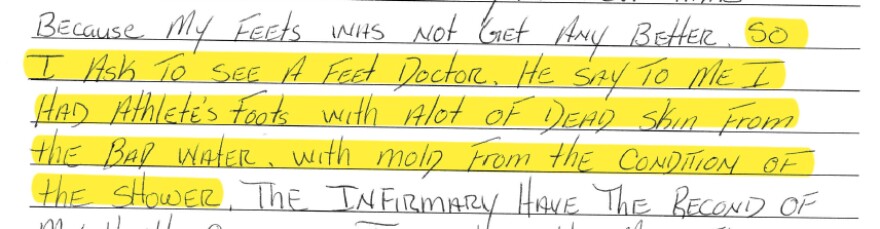 Because My Feets was Not Get Any Better. So
I Ask To See A Feet Doctor. He say To Me I
Had Athlete's Foots with Alot of Dead Skin From
the Bad Water. with mold From the Condition of
the Shower. The Infirmary Have The Recond of